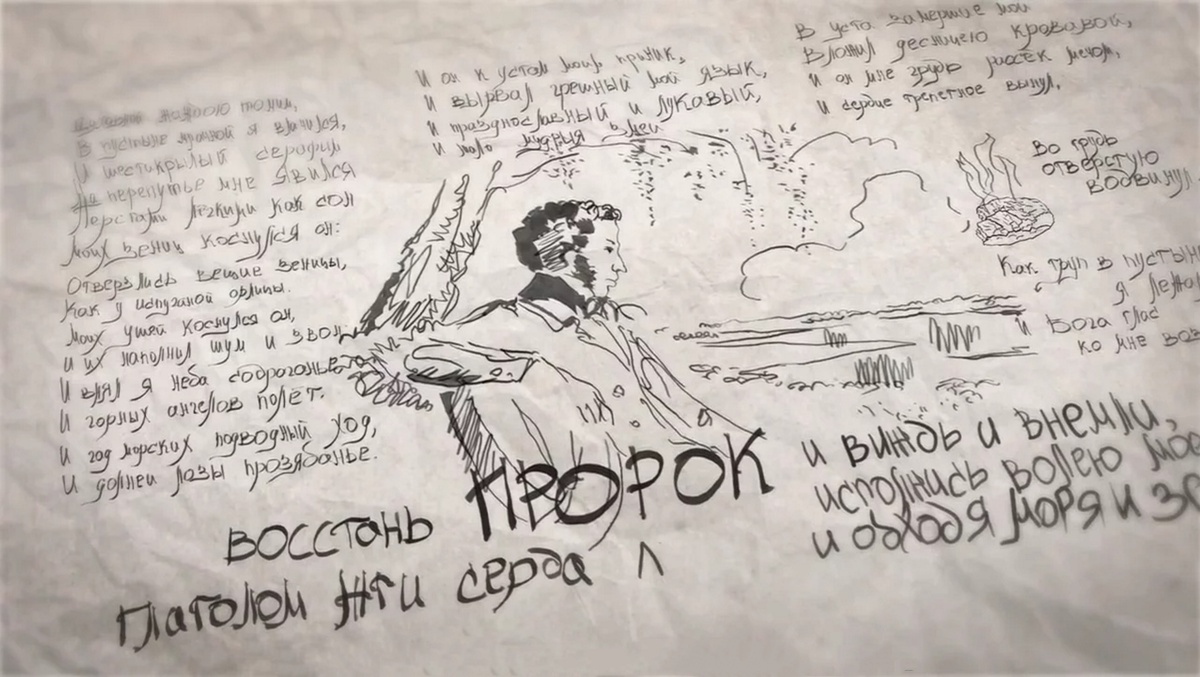 жаждою томим,
В пустыне мрачной я влачился,
И шестикрылый серафим
На перепутье мне явился
Перстами лёгкими как сон
Моих зениц коснулся он:
Отверзлись вещие зеницы,
Как у испуганой орлицы.
Моих ушей коснулся он,
И их наполнил шум и звон
И внял я неба
И горных ангелов полёт.
И гад морских подводный ход,
И дольней лозы прозябанье.
И он к устам моим приник,
И вырвал грешный мой язык,
И празднословный и лукавый,
И жало мудрыя змеи
В уста замершие мои
Вложил десницею кровавой,
И он мне грудь рассек мечом,
И сердце трепетное вынул,
Во грудь
отверстую
водвинул
Как труп в пустын
я лежа
И Бога глас
ко мне воз
восстань ПРОРОК
и виждь и внемли,
исполнись волею мое
и обходя моря и зе
Глаголом жги серда л